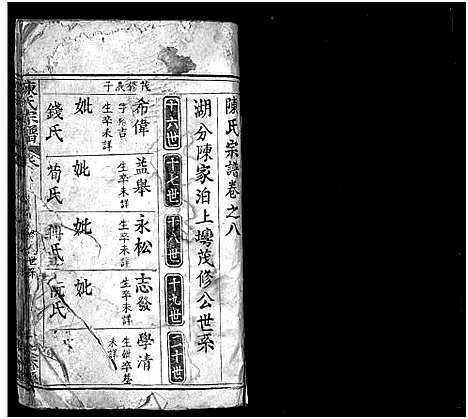 陳氏宗譜卷之八
湖分陳家泊上塆茂修公世系
十六世
十七世
十八世
十九世
二十世
茂修長子
希偉
字
吉
生卒未詳
益舉
生卒未詳
永松
生卒未詳
志發
生卒未詳
學清
生卒墓未詳
妣
錢氏
妣
荀氏
妣
傅氏
妣
阮氏
陳氏宗譜